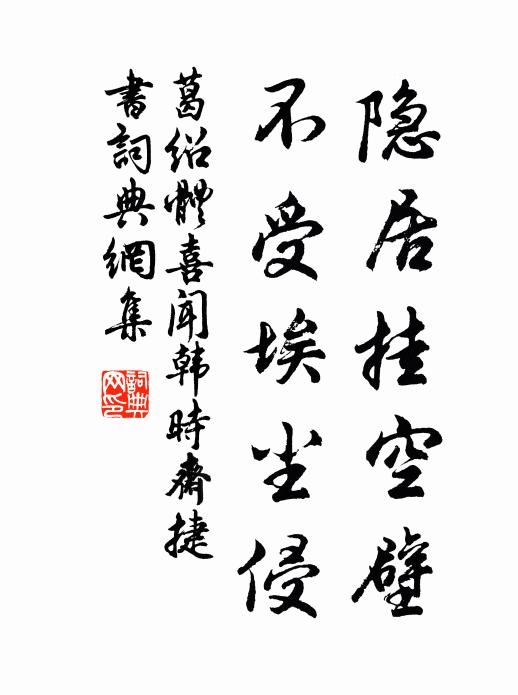 隐居挂空壁
不受埃尘侵
葛绍體喜闻韩時齋捷
書詞典網集
詞典网印